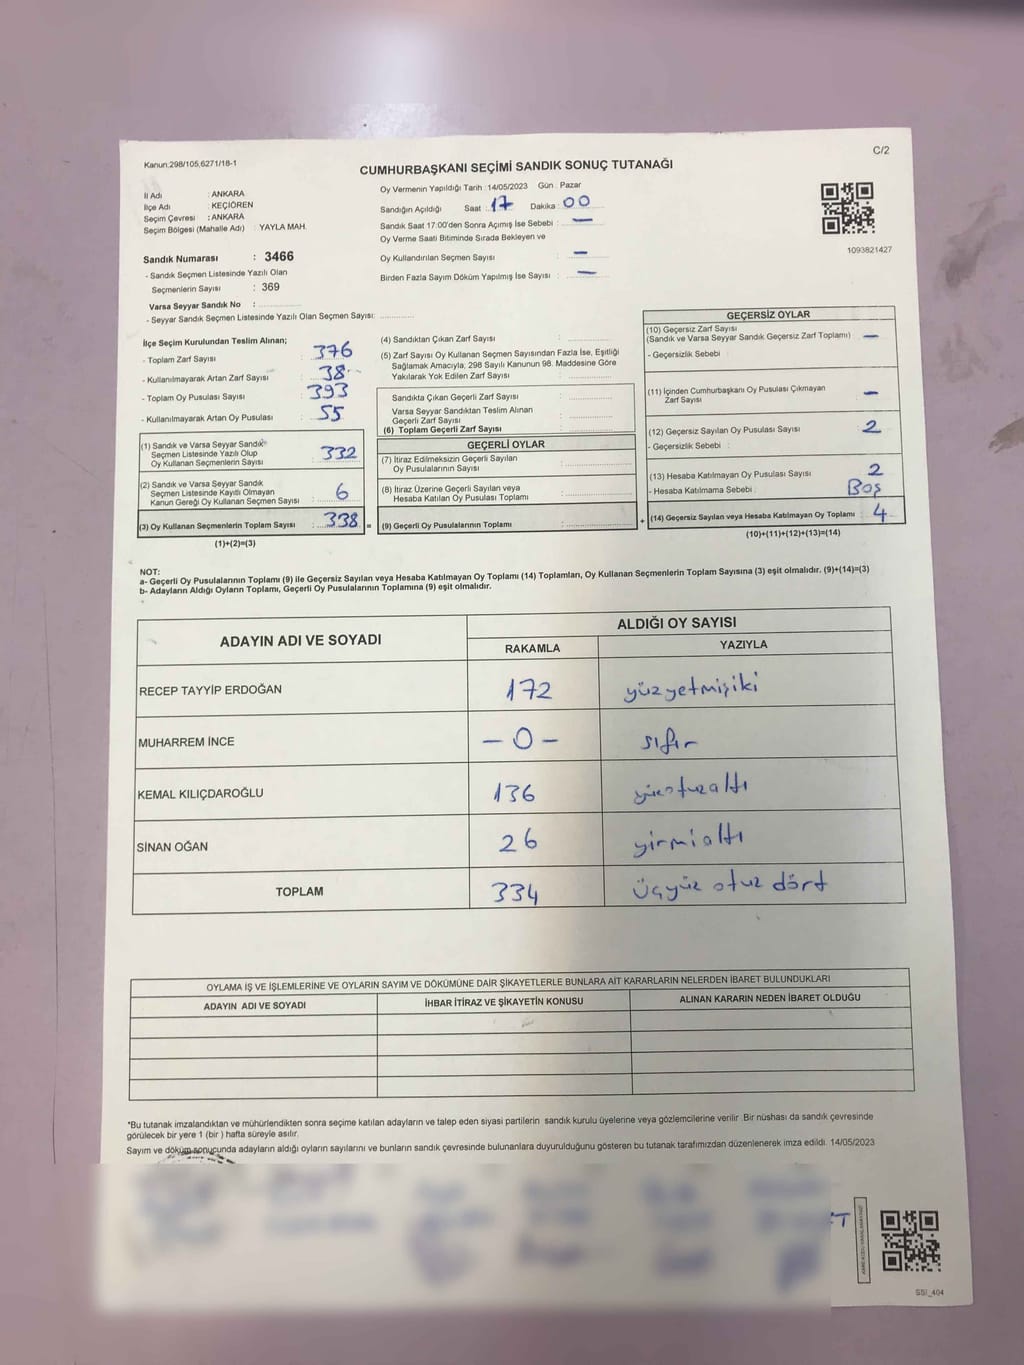 C/2
Kanun;298/105,6271/18-1
CUMHURBAŞKANI SEÇİMİ SANDIK SONUÇ TUTANAĞI
İl Adı : ANKARA
İlçe Adı : KEÇİÖREN
Seçim Çevresi : ANKARA
Seçim Bölgesi (Mahalle Adı) : YAYLA MAH.
Sandık Numarası : 3466
- Sandık Seçmen Listesinde Yazılı Olan
Seçmenlerin Sayısı : 369
Varsa Seyyar Sandık No :
- Seyyar Sandık Seçmen Listesinde Yazılı Olan Seçmen Sayısı:
Oy Vermenin Yapıldığı Tarih : 14/05/2023 Gün : Pazar
Sandığın Açıldığı Saat : 17 Dakika : 00
Sandık Saat 17:00'den Sonra Açımış İse Sebebi : —
Oy Verme Saati Bitiminde Sırada Bekleyen ve
Oy Kullandırılan Seçmen Sayısı : —
Birden Fazla Sayım Döküm Yapılmış İse Sayısı : —
1093821427
İlçe Seçim Kurulundan Teslim Alınan;
- Toplam Zarf Sayısı : 376
- Kullanılmayarak Artan Zarf Sayısı : 38
- Toplam Oy Pusulası Sayısı : 393
- Kullanılmayarak Artan Oy Pusulası : 55
(1) Sandık ve Varsa Seyyar Sandık
Seçmen Listesinde Yazılı Olup
Oy Kullanan Seçmenlerin Sayısı : 332
(2) Sandık ve Varsa Seyyar Sandık
Seçmen Listesinde Kayıtlı Olmayan
Kanun Gereği Oy Kullanan Seçmen Sayısı : 6
(3) Oy Kullanan Seçmenlerin Toplam Sayısı : 338 =
(1)+(2)=(3)
(4) Sandıktan Çıkan Zarf Sayısı :
(5) Zarf Sayısı Oy Kullanan Seçmen Sayısından Fazla İse, Eşitliği
Sağlamak Amacıyla, 298 Sayılı Kanunun 98. Maddesine Göre
Yakılarak Yok Edilen Zarf Sayısı :
Sandıkta Çıkan Geçerli Zarf Sayısı :
Varsa Seyyar Sandıktan Teslim Alınan
Geçerli Zarf Sayısı :
(6) Toplam Geçerli Zarf Sayısı :
GEÇERLİ OYLAR
(7) İtiraz Edilmeksizin Geçerli Sayılan
Oy Pusulalarının Sayısı :
(8) İtiraz Üzerine Geçerli Sayılan veya
Hesaba Katılan Oy Pusulası Toplamı :
(9) Geçerli Oy Pusulalarının Toplamı : +
GEÇERSİZ OYLAR
(10) Geçersiz Zarf Sayısı
(Sandık ve Varsa Seyyar Sandık Geçersiz Zarf Toplamı) : —
- Geçersizlik Sebebi :
(11) İçinden Cumhurbaşkanı Oy Pusulası Çıkmayan
Zarf Sayısı : —
(12) Geçersiz Sayılan Oy Pusulası Sayısı : 2
- Geçersizlik Sebebi :
(13) Hesaba Katılmayan Oy Pusulası Sayısı : 2
- Hesaba Katılmama Sebebi : Boş
(14) Geçersiz Sayılan veya Hesaba Katılmayan Oy Toplamı : 4
(10)+(11)+(12)+(13)=(14)
NOT:
a- Geçerli Oy Pusulalarının Toplamı (9) ile Geçersiz Sayılan veya Hesaba Katılmayan Oy Toplamı (14) Toplamları, Oy Kullanan Seçmenlerin Toplam Sayısına (3) eşit olmalıdır. (9)+(14)=(3)
b- Adayların Aldığı Oyların Toplamı, Geçerli Oy Pusulalarının Toplamına (9) eşit olmalıdır.
ADAYIN ADI VE SOYADI
ALDIĞI OY SAYISI
RAKAMLA YAZIYLA
RECEP TAYYİP ERDOĞAN 172 yüzyetmişiki
MUHARREM İNCE - 0 - sıfır
KEMAL KILIÇDAROĞLU 136 yüzotuzaltı
SİNAN OĞAN 26 yirmialtı
TOPLAM 334 üçyüz otuz dört
OYLAMA İŞ VE İŞLEMLERİNE VE OYLARIN SAYIM VE DÖKÜMÜNE DAİR ŞİKAYETLERLE BUNLARA AİT KARARLARIN NELERDEN İBARET BULUNDUKLARI
ADAYIN ADI VE SOYADI İHBAR İTİRAZ VE ŞİKAYETİN KONUSU ALINAN KARARIN NEDEN İBARET OLDUĞU
*Bu tutanak imzalandıktan ve mühürlendikten sonra seçime katılan adayların ve talep eden siyasi partilerin sandık kurulu üyelerine veya gözlemcilerine verilir. Bir nüshası da sandık çevresinde
görülecek bir yere 1 (bir ) hafta süreyle asılır.
Sayım ve döküm sonucunda adayların aldığı oyların sayılarını ve bunların sandık çevresinde bulunanlara duyurulduğunu gösteren bu tutanak tarafımızdan düzenlenerek imza edildi. 14/05/2023
SSI_404